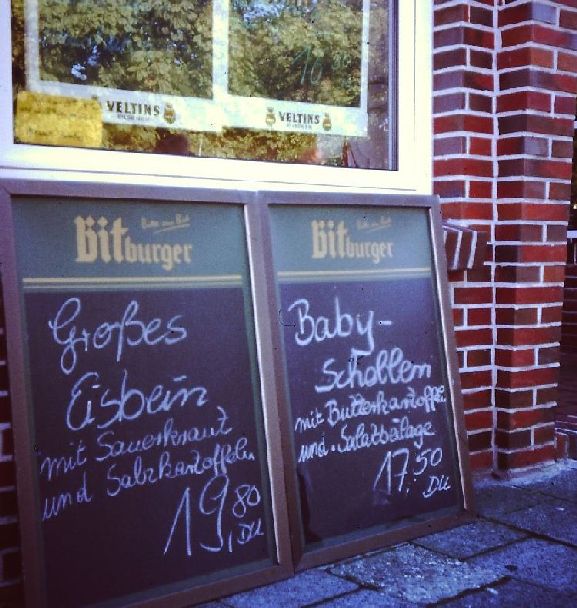 VELTINS
VELTINS
Bitte ein Bit
Bitburger
Großes
Eisbein
mit Sauerkraut
und Salzkartoffeln
19,80
DM
Bitte ein Bit
Bitburger
Baby-
Schollen
mit Butterkartoffeln
und Salatbeilage
17,50
DM